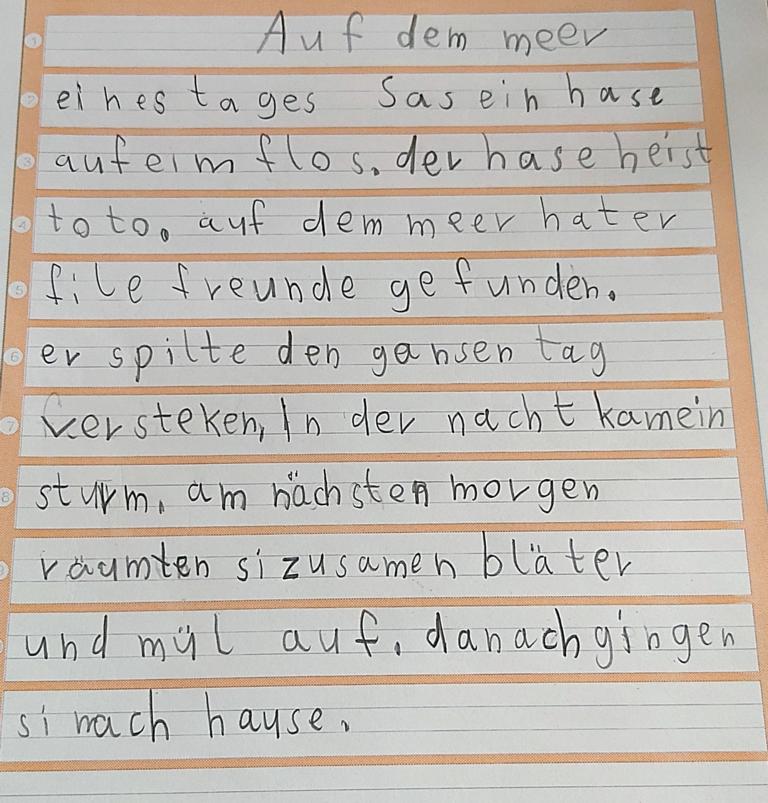 Auf dem meer
eines tages Sas ein hase
auf eim flos. der hase heist
toto. auf dem meer hat er
file freunde gefunden.
er spilte den gansen tag
versteken, In der nacht kam ein
sturm. am nächsten morgen
räumten si zusamen bläter
und mül auf. danach gingen
si nach hause.